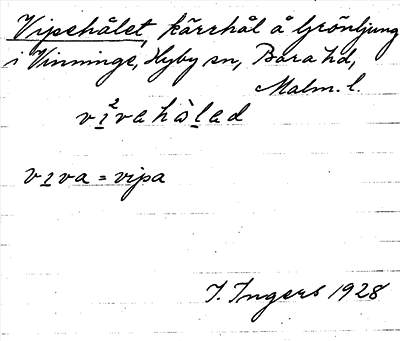 Vipehålet, kärrhål å Grönljung
i Vinninge, Hyby sn, Bara hd,
Malm. l.
vɪ²vahàlad
vɪva = vipa
I. Ingers 1928